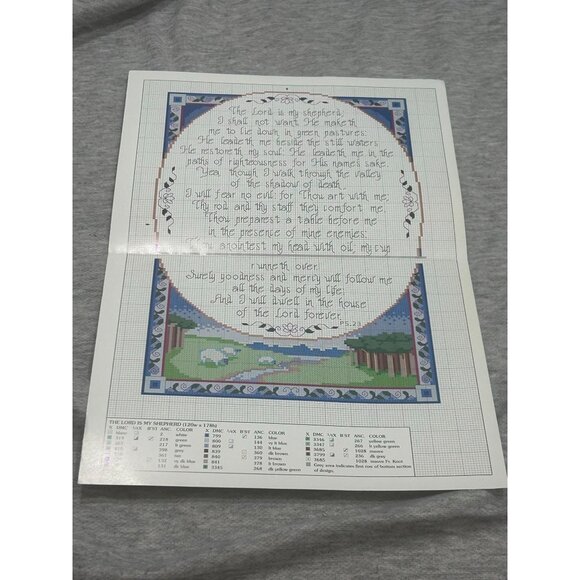 The Lord is my shepherd;
I shall not want. He maketh
me to lie down in green pastures:
He leadeth me beside the still waters.
He restoreth my soul: He leadeth me in the
paths of righteousness for His name's sake.
Yea, though I walk through the valley
of the shadow of death,
I will fear no evil: for Thou art with me;
Thy rod and thy staff they comfort me.
Thou preparest a table before me
in the presence of mine enemies:
Thou anointest my head with oil; my cup
runneth over.
Surely goodness and mercy will follow me
all the days of my life:
And I will dwell in the house
of the Lord forever.
PS.23
THE LORD IS MY SHEPHERD (120w x 178h)
X DMC ¼X B'ST ANC. COLOR X DMC ¼X B'ST ANC. COLOR X DMC ¼X B'ST ANC. COLOR
2 white 799 136 blue 3346 267 yellow green
218 green 800 144 vy lt blue 3347 266 lt yellow green
217 lt green 809 130 lt blue 3685 1028 mauve
398 grey 839 360 dk brown 3799 236 dk grey
361 tan 840 379 brown 3685 1028 mauve Fr. Knot
132 vy dk blue 841 378 lt brown Grey area indicates first row of bottom section
131 dk blue 3345 268 dk yellow green of design.